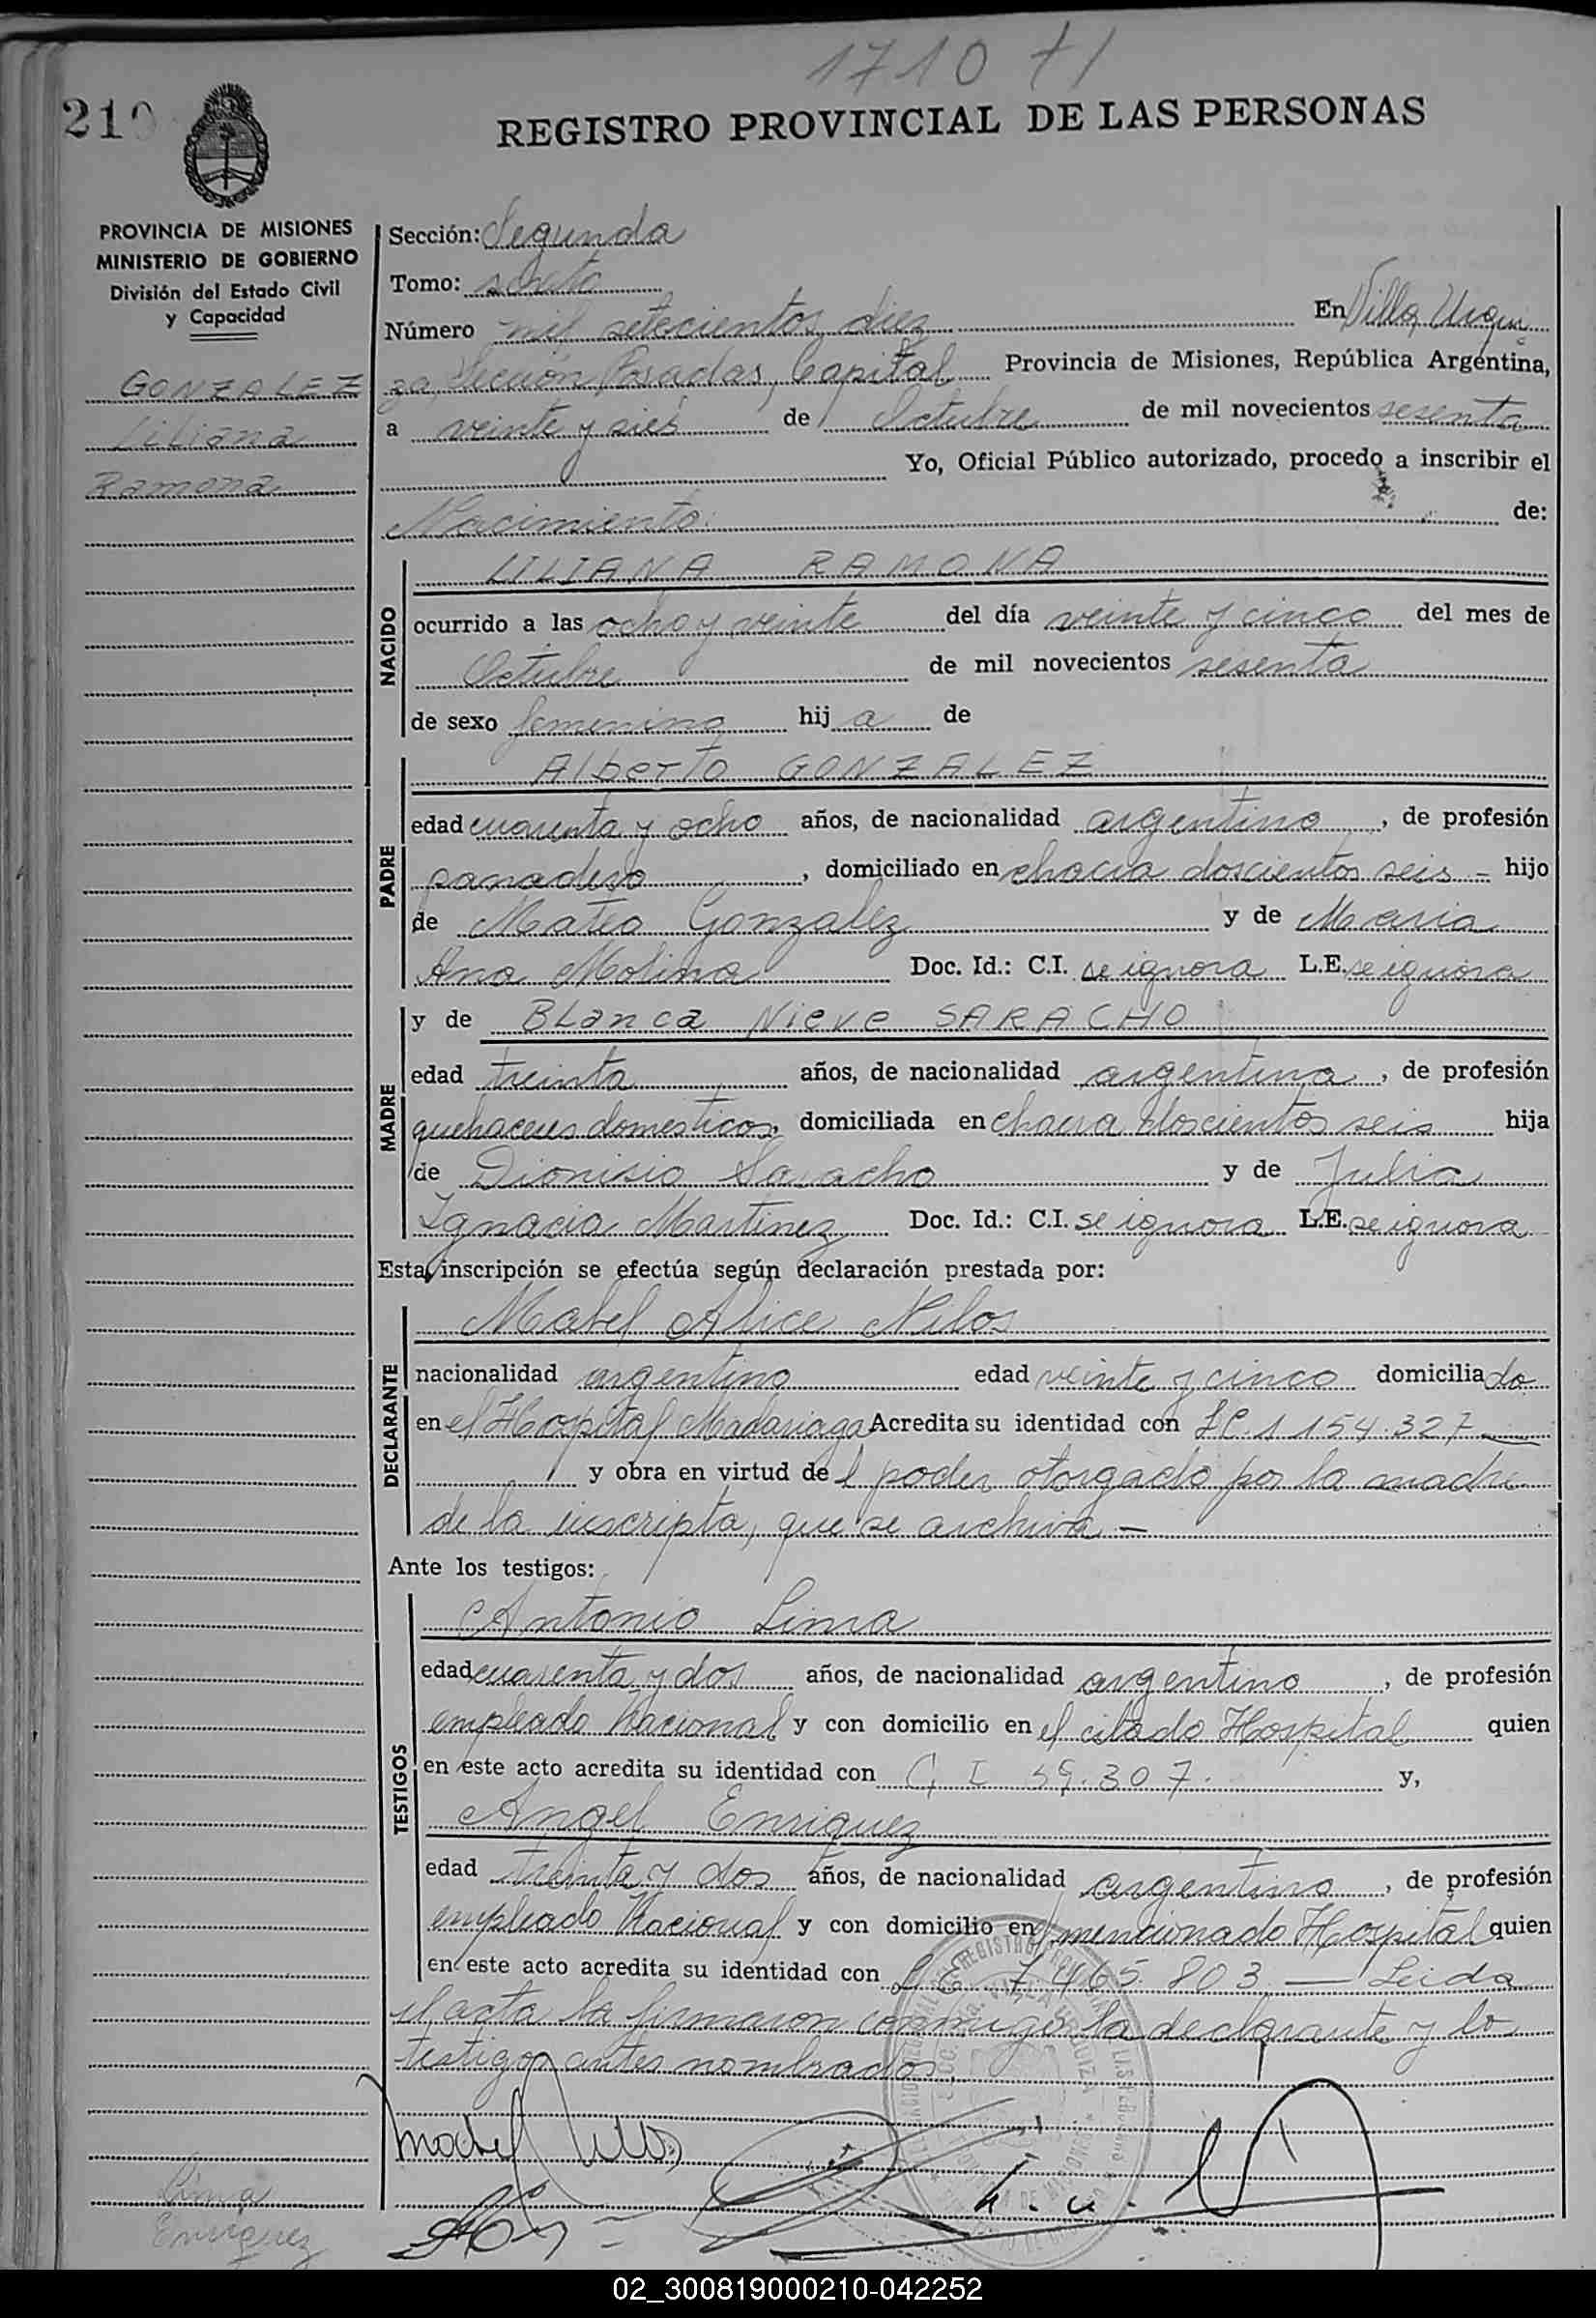 1710 t/
210
REGISTRO PROVINCIAL DE LAS PERSONAS
PROVINCIA DE MISIONES
MINISTERIO DE GOBIERNO
División del Estado Civil
y Capacidad
GONZALEZ
Liliana
Ramona
Sección: Segunda
Tomo: sexto
Número mil setecientos diez En Villa Urqui
za, Sección Posadas, Capital Provincia de Misiones, República Argentina,
a veinte y sies de Octubre de mil novecientos sesenta
Yo, Oficial Público autorizado, procedo a inscribir el
Nacimiento de:
NACIDO
LILIANA RAMONA
ocurrido a las ocho y veinte del día veinte y cinco del mes de
Octubre de mil novecientos sesenta
de sexo femenino hij a de
PADRE
Alberto GONZALEZ
edad cuarenta y ocho años, de nacionalidad argentino, de profesión
panadero, domiciliado en chacra doscientos seis - hijo
de Mateo Gonzalez y de Maria
Ana Molina Doc. Id.: C.I. se ignora L.E. se ignora
MADRE
y de Blanca Nieve SARACHO
edad treinta años, de nacionalidad argentina, de profesión
quehaceres domesticos, domiciliada en chacra doscientos seis hija
de Dionisio Saracho y de Julia
Ignacia Martinez Doc. Id.: C.I. se ignora L.E. se ignora
Esta inscripción se efectúa según declaración prestada por:
DECLARANTE
Mabel Alice Nilos
nacionalidad argentino edad veinte y cinco domicilia do
en el Hospital Madariaga Acredita su identidad con LC. 1 154.327
y obra en virtud de l poder otorgado por la madre
de la inscripta, que se archiva -
Ante los testigos:
TESTIGOS
Antonio Lima
edad cuarenta y dos años, de nacionalidad argentino, de profesión
empleado Nacional y con domicilio en el citado Hospital quien
en este acto acredita su identidad con C I 39.307. y,
Angel Enriquez
edad treinta y dos años, de nacionalidad argentino, de profesión
empleado Nacional y con domicilio en el mencionado Hospital quien
en este acto acredita su identidad con L E 7.465.803 — Leida
el acta la firmaron conmigo la declarante y lo
testigos antes nombrados.
Mabel Nilos
Lima
Enriquez
02_300819000210-042252